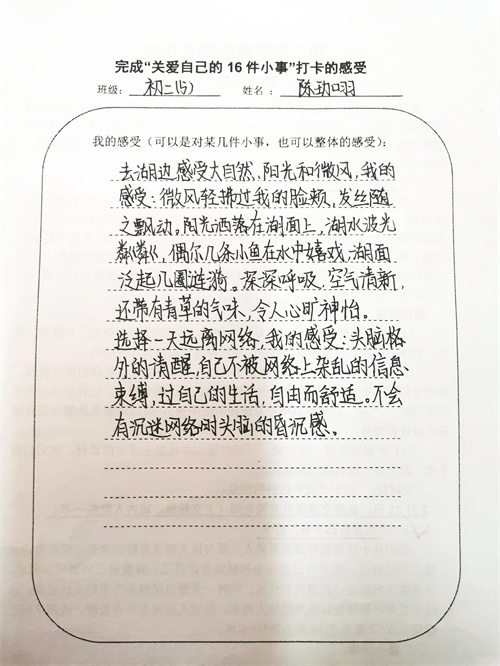 完成“关爱自己的 16 件小事”打卡的感受
班级： 初二(5) 姓名： 陈玏翊
我的感受（可以是对某几件小事，也可以整体的感受）：
去湖边感受大自然,阳光和微风,我的
感受:微风轻拂过我的脸颊,发丝随
之飘动。阳光洒落在湖面上,湖水波光
粼粼,偶尔几条小鱼在水中嬉戏,湖面
泛起几圈涟漪。深深呼吸,空气清新,
还带有青草的气味,令人心旷神怡。
选择一天远离网络,我的感受:头脑格
外的清醒,自己不被网络上杂乱的信息
束缚,过自己的生活,自由而舒适。不会
有沉迷网络时头脑的昏沉感。